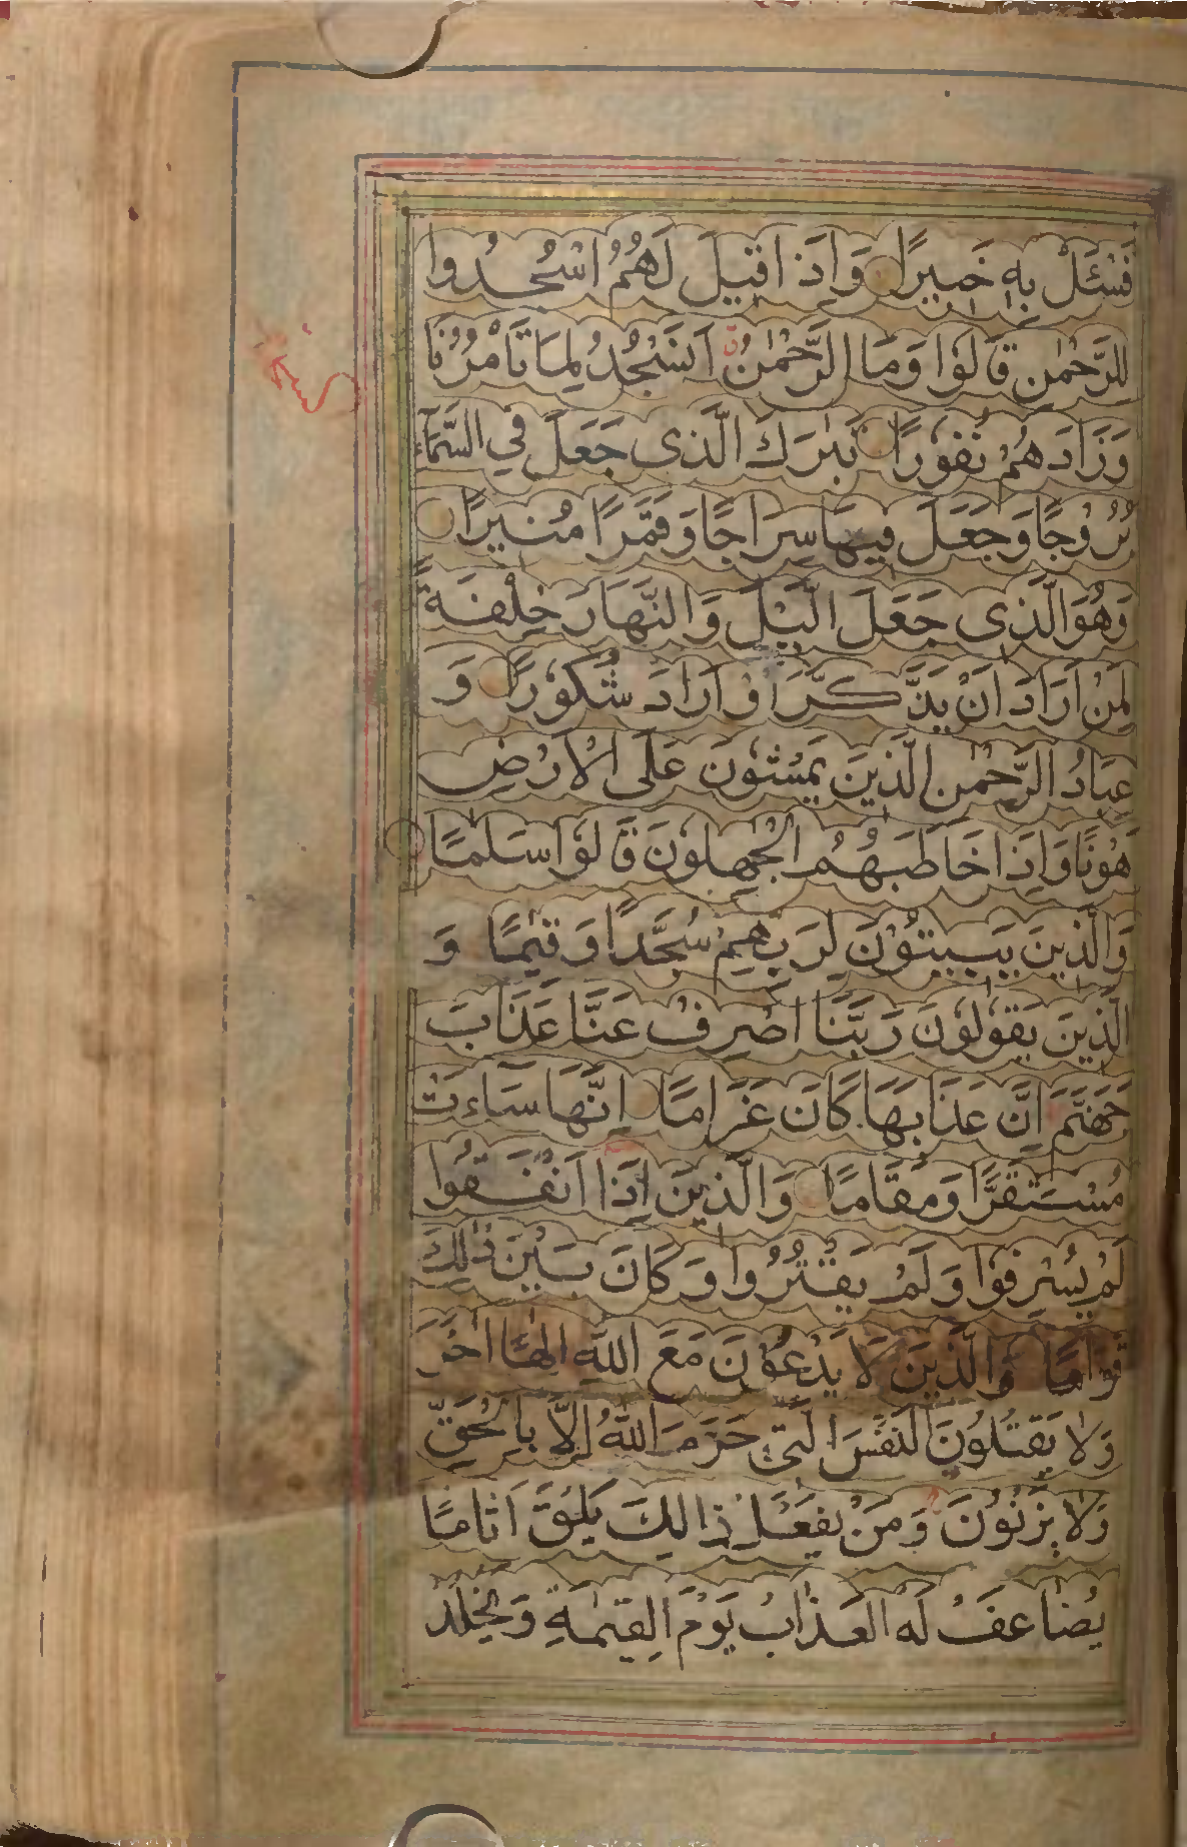 فَسْئَلْ بِهٖ خَبِيرًا وَاِذَا قِيلَ لَهُمُ اسْجُدُوا
لِلرَّحْمٰنِ قَالُوْا وَمَا الرَّحْمٰنُ اَنَسْجُدُ لِمَا تَاْمُرُنَا
وَزَادَهُمْ نُفُوْرًا تَبٰرَكَ الَّذى جَعَلَ فِي السَّمَآءِ
بُرُوْجًا وَجَعَلَ فِيهَا سِرَاجًا وَقَمَرًا مُنِيرًا
وَهُوَ الَّذى جَعَلَ الَّيْلَ وَالنَّهَارَ خِلْفَةً
لِمَنْ اَرَادَ اَنْ يَذَّكَّرَ اَوْ اَرَادَ شُكُوْرًا وَ
عِبَادُ الرَّحْمٰنِ الَّذِينَ يَمْشُوْنَ عَلَى الْاَرْضِ
هَوْنًا وَاِذَا خَاطَبَهُمُ الْجٰهِلُوْنَ قَالُوْا سَلٰمًا
وَالَّذِينَ يَبِيتُوْنَ لِرَبِّهِمْ سُجَّدًا وَقِيٰمًا وَ
الَّذِينَ يَقُوْلُوْنَ رَبَّنَا اصْرِفْ عَنَّا عَذَابَ
جَهَنَّمَ اِنَّ عَذَابَهَا كَانَ غَرَامًا اِنَّهَا سَآءَتْ
مُسْتَقَرًّا وَمُقَامًا وَالَّذِينَ اِذَا اَنْفَقُوا
لَمْ يُسْرِفُوْا وَلَمْ يَقْتُرُوا وَكَانَ بَيْنَ ذٰلِكَ
قَوَامًا وَالَّذِينَ لَا يَدْعُوْنَ مَعَ اللّٰهِ اِلٰهًا اٰخَرَ
وَلَا يَقْتُلُوْنَ النَّفْسَ الَّتِىْ حَرَّمَ اللّٰهُ اِلَّا بِالْحَقِّ
وَلَا يَزْنُوْنَ وَمَنْ يَفْعَلْ ذَالِكَ يَلْقَ اَثَامًا
يُضَاعَفْ لَهُ الْعَذَابُ يَوْمَ الْقِيٰمَةِ وَيَخْلُدْ